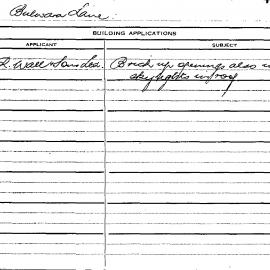 Bulwara Lane.
BUILDING APPLICATIONS
APPLICANT SUBJECT
Wall & Sons Ltd. Brick up openings also in
skylights in roof